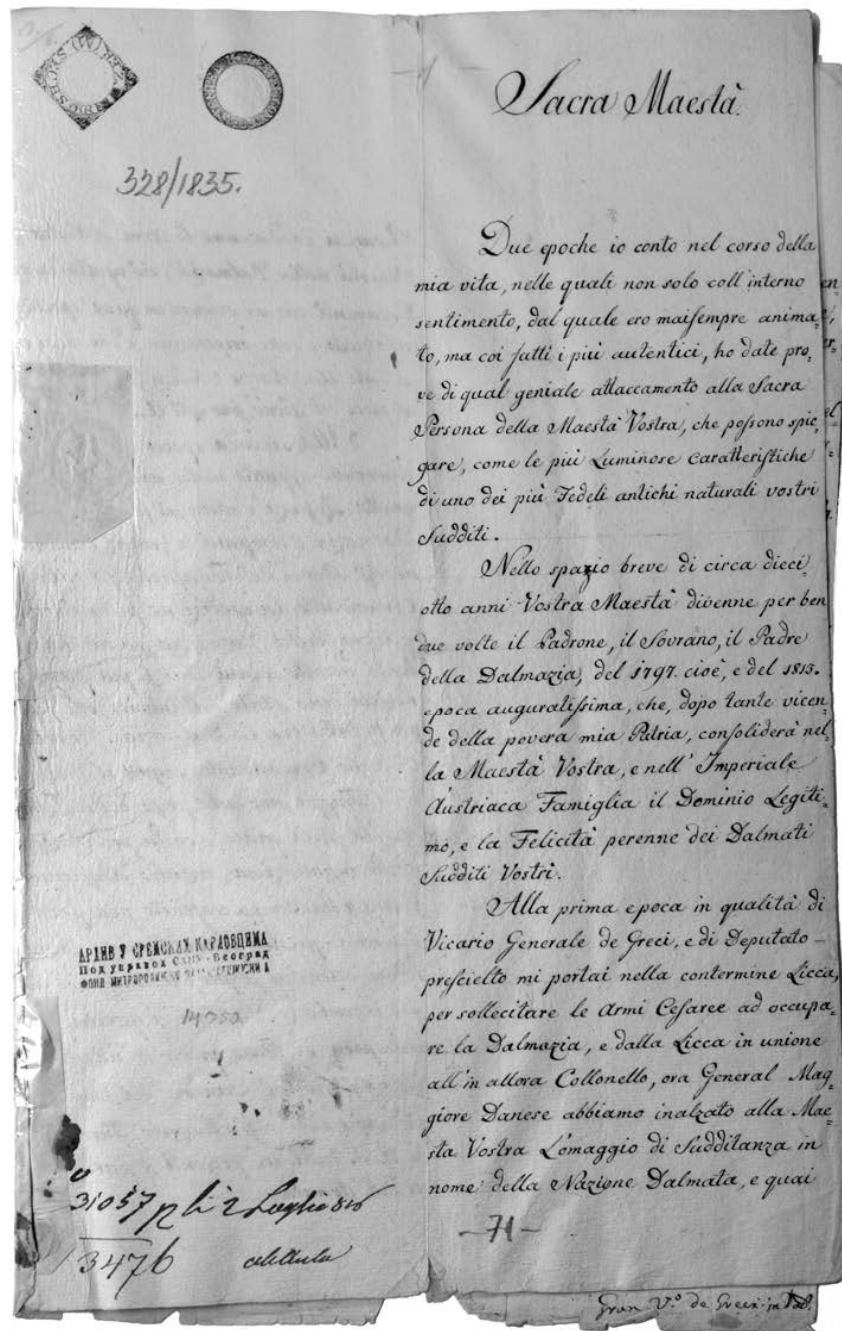 328/1835.
Sacra Maestà.
Due epoche io conto nel corso della
mia vita, nelle quali non solo coll'interno
sentimento, dal quale ero maisempre anima=
to, ma coi fatti i più autentici, ho date pro=
ve di qual geniale attaccamento alla Sacra
Persona della Maestà Vostra, che possono spic=
gare, come le più Luminose caratteristiche
di uno dei più Fedeli antichi naturali vostri
Sudditi.
Nello spazio breve di circa dieci
otto anni Vostra Maestà divenne per ben
due volte il Padrone, il Sovrano, il Padre
della Dalmazia, del 1797. cioè, e del 1813.
epoca auguratissima, che, dopo tante vicen=
de della povera mia Patria, consoliderà nel=
la Maestà Vostra, e nell' Imperiale
Austriaca Famiglia il Dominio Legiti=
mo, e la Felicità perenne dei Dalmati
Sudditi Vostri.
Alla prima epoca in qualità di
Vicario Generale de Greci, e di Deputato –
prescielto mi portai nella contermine Licca,
per sollecitare le Armi Cesaree ad occupa=
re la Dalmazia, e dalla Licca in unione
all'in allora Collonello, ora General Mag=
giore Danese abbiamo inalzato alla Mae=
sta Vostra L'omaggio di Sudditanza in
nome della Nazione Dalmata, e quai
–71–
АРХИВ У СРЕМСКИМ КАРЛОВЦИМА
Под управом САНУ - Београд
ФОНД МИТРОПОЛИЈСКО
14050
31057 2 Luglio 816
13476
Gran V.º de Greci in